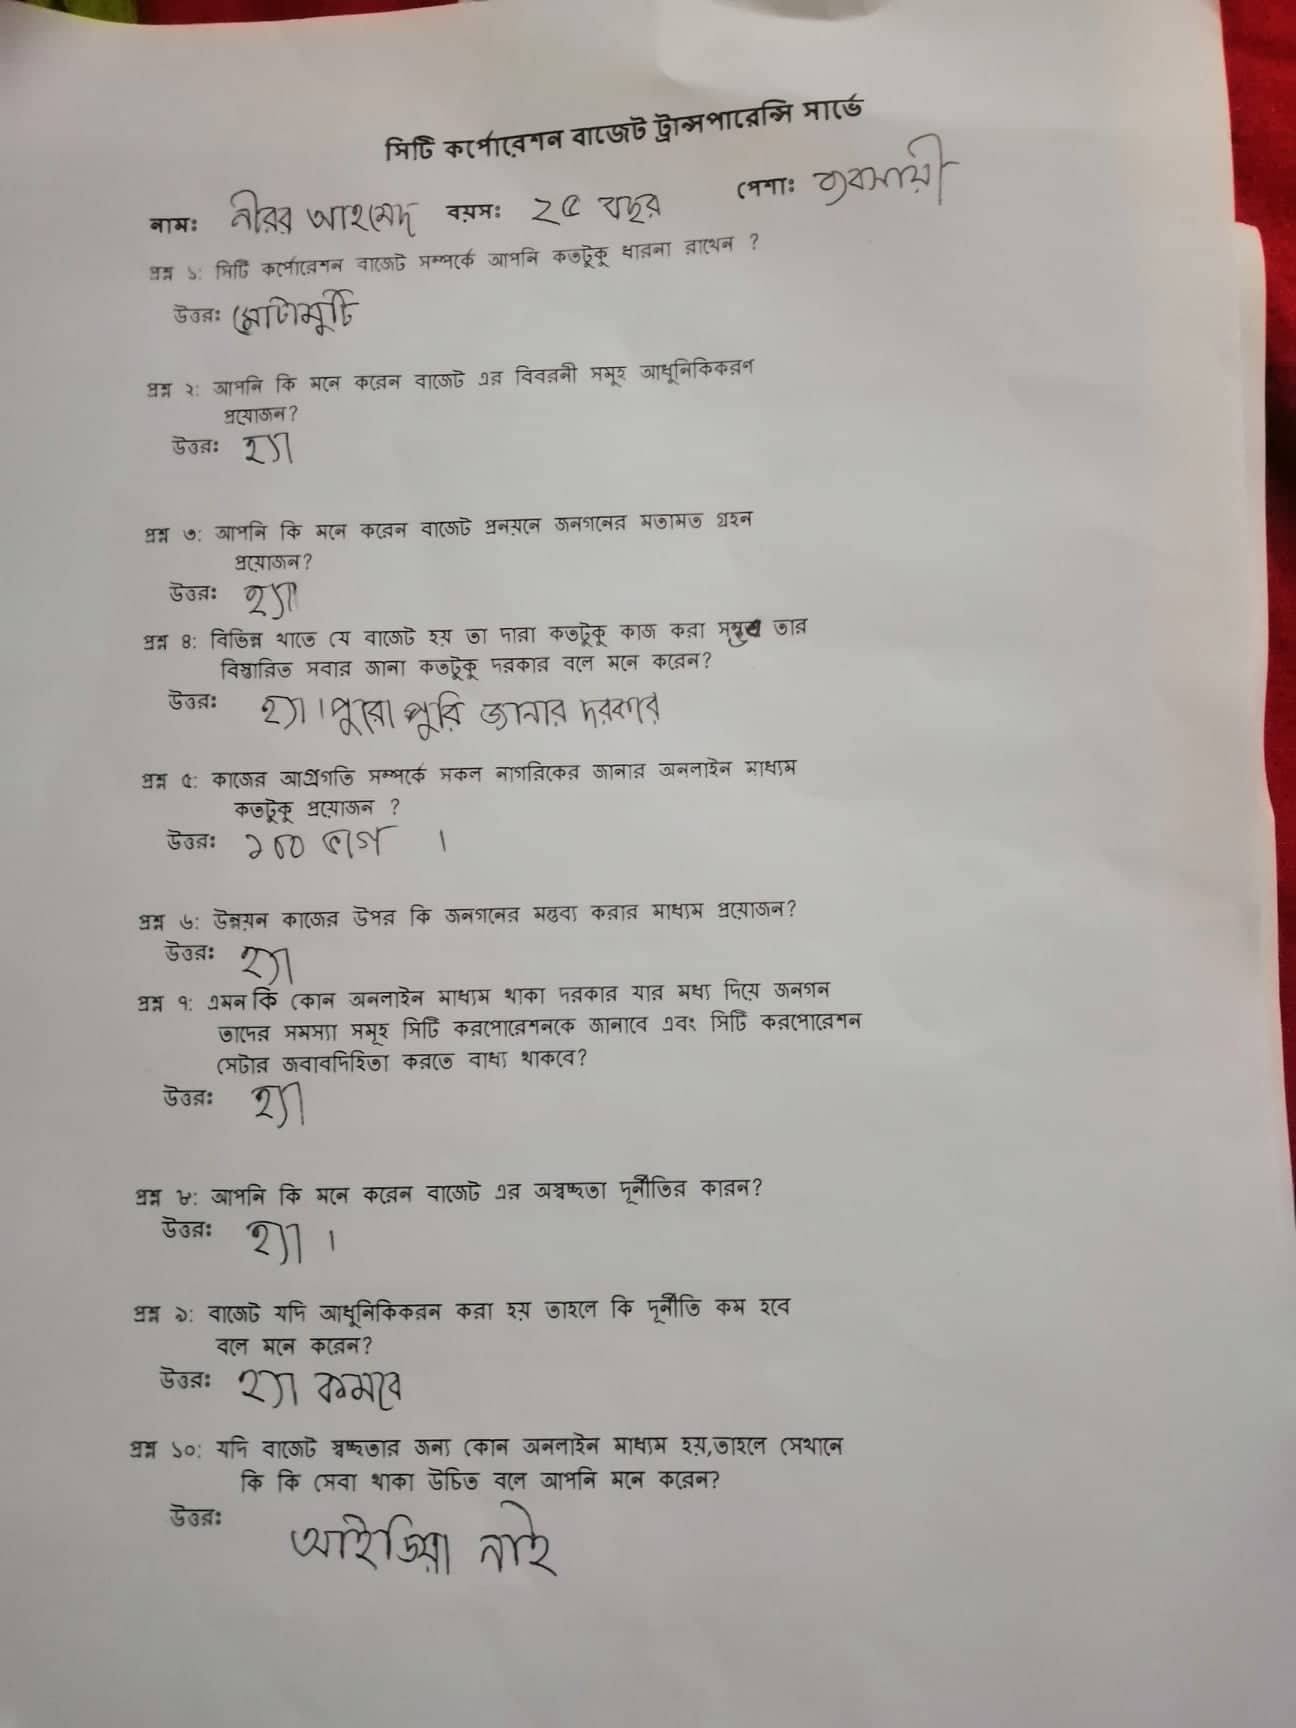 সিটি কর্পোরেশন বাজেট ট্রান্সপারেন্সি সার্ভে
নামঃ নীরব আহমেদ বয়সঃ ২৫ বছর পেশাঃ ব্যবসায়ী
প্রশ্ন ১: সিটি কর্পোরেশন বাজেট সম্পর্কে আপনি কতটুকু ধারনা রাখেন ?
উত্তরঃ মোটামুটি
প্রশ্ন ২: আপনি কি মনে করেন বাজেট এর বিবরনী সমূহ আধুনিকিকরণ
প্রয়োজন?
উত্তরঃ হ্যা
প্রশ্ন ৩: আপনি কি মনে করেন বাজেট প্রনয়নে জনগনের মতামত গ্রহন
প্রয়োজন?
উত্তরঃ হ্যা
প্রশ্ন ৪: বিভিন্ন খাতে যে বাজেট হয় তা দারা কতটুকু কাজ করা সম্ভব তার
বিস্তারিত সবার জানা কতটুকু দরকার বলে মনে করেন?
উত্তরঃ হ্যা। পুরো পুরি জানার দরকার
প্রশ্ন ৫: কাজের আগ্রগতি সম্পর্কে সকল নাগরিকের জানার অনলাইন মাধ্যম
কতটুকু প্রয়োজন ?
উত্তরঃ ১০০ ভাগ ।
প্রশ্ন ৬: উন্নয়ন কাজের উপর কি জনগনের মন্তব্য করার মাধ্যম প্রয়োজন?
উত্তরঃ হ্যা
প্রশ্ন ৭: এমন কি কোন অনলাইন মাধ্যম থাকা দরকার যার মধ্য দিয়ে জনগন
তাদের সমস্যা সমূহ সিটি করপোরেশনকে জানাবে এবং সিটি করপোরেশন
সেটার জবাবদিহিতা করতে বাধ্য থাকবে?
উত্তরঃ হ্যা
প্রশ্ন ৮: আপনি কি মনে করেন বাজেট এর অস্বচ্ছতা দূর্নীতির কারন?
উত্তরঃ হ্যা ।
প্রশ্ন ৯: বাজেট যদি আধুনিকিকরন করা হয় তাহলে কি দূর্নীতি কম হবে
বলে মনে করেন?
উত্তরঃ হ্যা কমবে
প্রশ্ন ১০: যদি বাজেট স্বচ্ছতার জন্য কোন অনলাইন মাধ্যম হয়,তাহলে সেখানে
কি কি সেবা থাকা উচিত বলে আপনি মনে করেন?
উত্তরঃ
আইডিয়া নাই